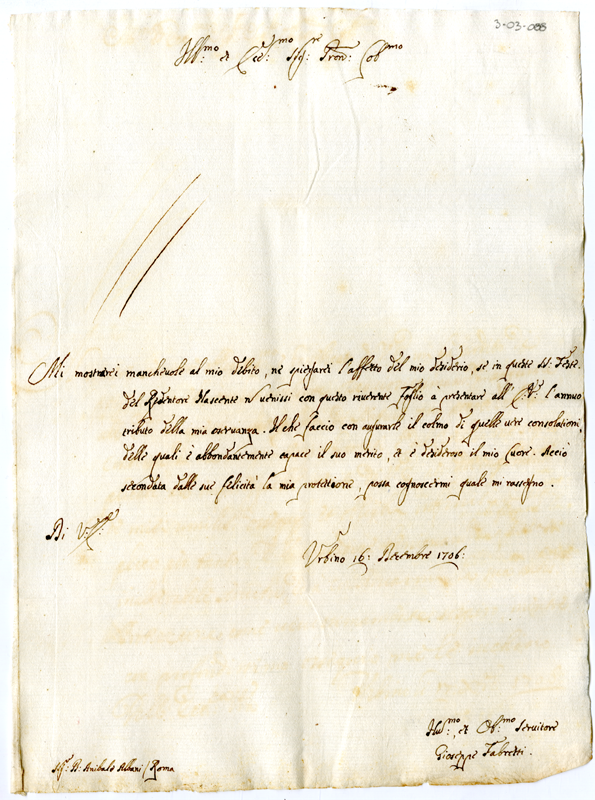 3-03-088
Ill:mo et Ecc:mo Sig:re Pron: Col:mo
Mi mostrarei manchevole al mio debito, ne spiegarei l'affetto del mio desiderio, se in queste SS: Feste
del Redentore Nascente n̄ venissi con questo riverente foglio à presentare all' l'annuo
tributo della mia osservanza. Il che faccio con augurarle il colmo di quelle vere consolationi,
delle quali è abbondantemente capace il suo merito, et è desideroso il mio cuore. Acciò
secondata dalle sue felicità la mia protettione, possa cognoscermi quale mi rassegno.
Di V:
Urbino 16: Decembre 1706:
Hu:mo et Ob:mo Servitore
Gioseppe Fabretti.
Sig: D: Anibale Albani / Roma